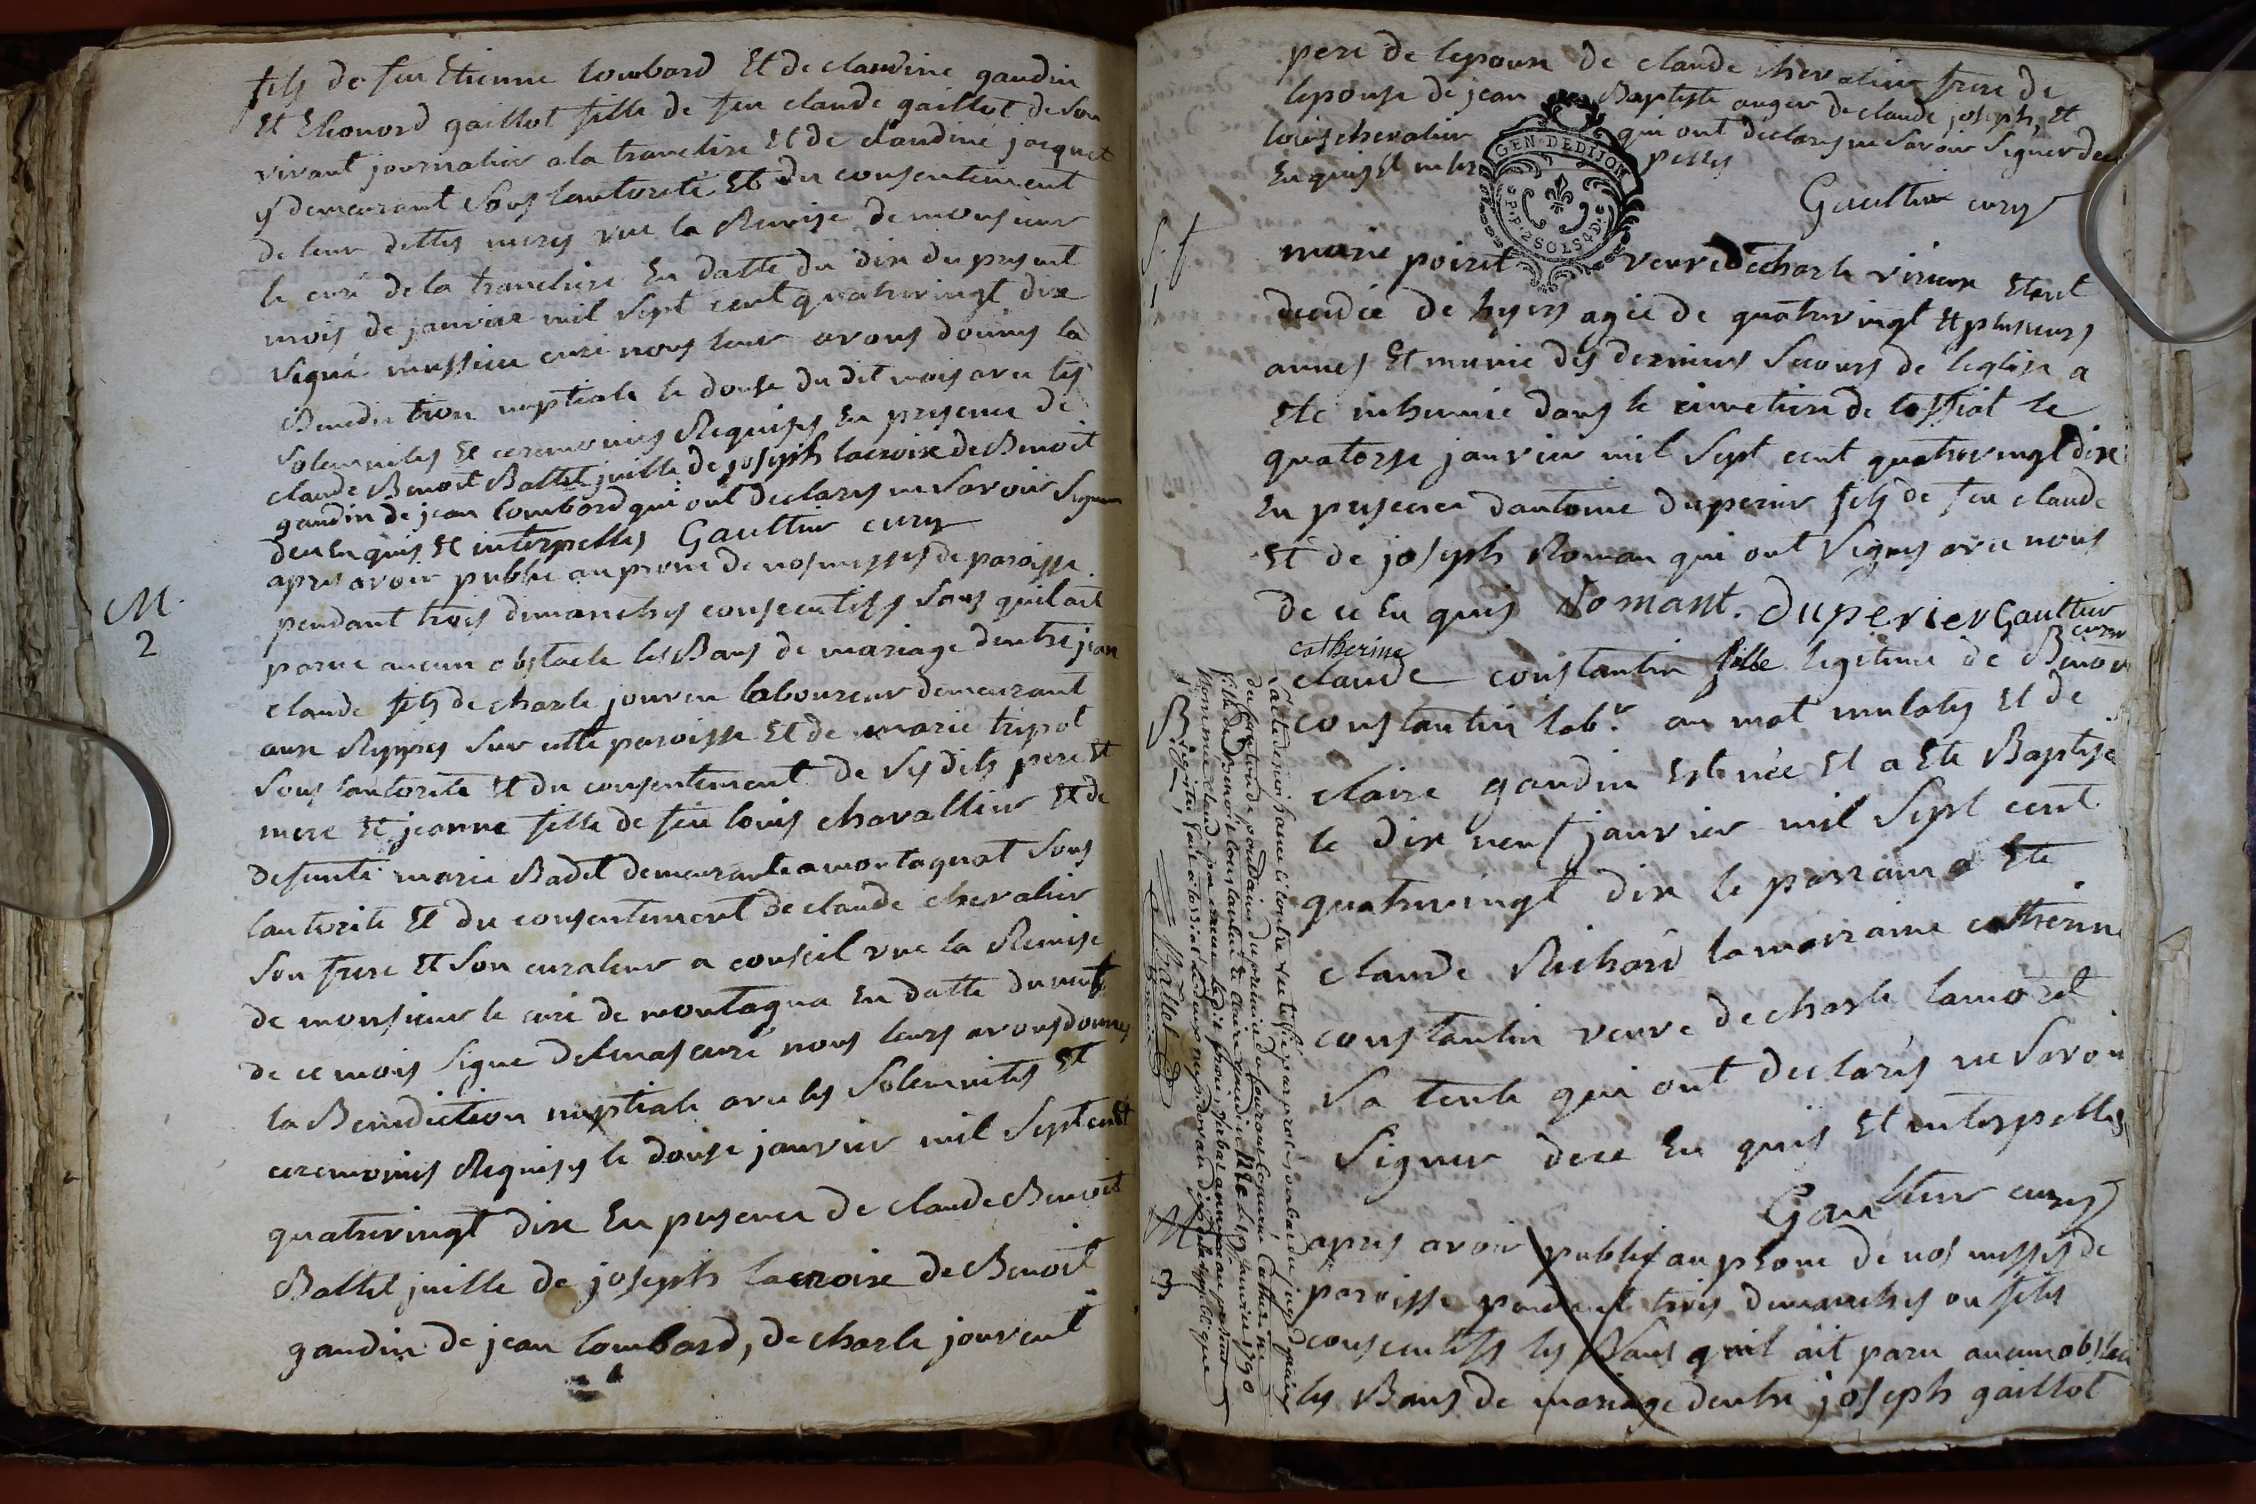 fils de feu Etienne lombard Et de claudine gaudin
Et Eleonord gaillot fille de feu claude gaillot de son
vivant journalier a la tranclire Et de claudine jacquet
y demeurant sous lautorité Et du consentement
de leur dittes meres vue la Remise de monsieur
le curé de la trancliere En datte du dix du present
mois de janvier mil sept cent quatrevingt dix
signé curé nous leur avons donnés la
Benediction nuptiale le douse du dit mois avec les
solemnites Et ceremonies Requises En presence de
claude Benoit Battet juille de joseph lacroix de Benoit
gaudin de jean lombard qui ont declarés ne savoir signer
deu En quis Et interpelles Gaultier curé
M.
2
apres avoir publie au prone de nos messes de paroisse
pendant trois dimanches consecutifs sans quil ait
parue aucun obstacle les Bans de mariage dentre jean
claude fils de charle jouven laboureur demeurant
aux Rippes sur cette paroisse Et de marie tripot
sous lautorité Et du consentement de ses dits pere Et
mere Et jeanne fille de feu louis chavallier Et de
defunte marie Badet demeurante a montagnat sous
lautorite Et du consentement de claude chevalier
son frere Et son curateur a conseil vue la Remise
de monsieur le curé de montagna En datte du neuf
de ce mois signe delmas curé nous leurs avons donnes
la Benediction nuptiale avec les solemnites Et
ceremonies Requises le douse janvier mil sept cent
quatrevingt dix En presence de claude Benoit
Battet juille de joseph lacroix de Benoit
gaudin de jean lombard, de charle jouvent
pere de lepoux de claude chevalier frere de
lepouse de jean Baptiste auger de claude joseph, Et
louis chevalier qui ont declarés ne savoir signer de ce
En quis Et inter pelles
Gaultier curé
GEN. DEDIJON
P.P. 2 SOLS 4 D.
S. f
1
marie poiret veuve de charle virieux Etant
decedée de hyers agée de quatrevingt Et plusieurs
annes Et munie des derniers secours de leglise a
ete inhumée dans le cimetiere de tossiat le
quatorse janvier mil sept cent quatrevingt dix
En presence dantoine duperier fils de feu claude
Et de joseph Roman qui ont signes avec nous
de ce En quis Romant. duperier Gaultier
curé
catherine
claude constantin fille legitime de Benoit
constantin labr. au mat mulates Et de
claire gaudin Est née Et a Ete Baptisé
le dix neuf janvier mil sept cent
quatrevingt dix le parrain a Ete
claude Richard la marraine catherine
constantin veuve de charle lamoret
sa tente qui ont declarés ne savoir
signer dece En quis Et interpelles
Gaultier curé
M
3
apres avoir publies au prone de nos messes de
paroisse pendant trois dimanches ou fetes
consecutifs les Sans quil ait paru aucun obstacle
les Bans de mariage dentre joseph gaillot